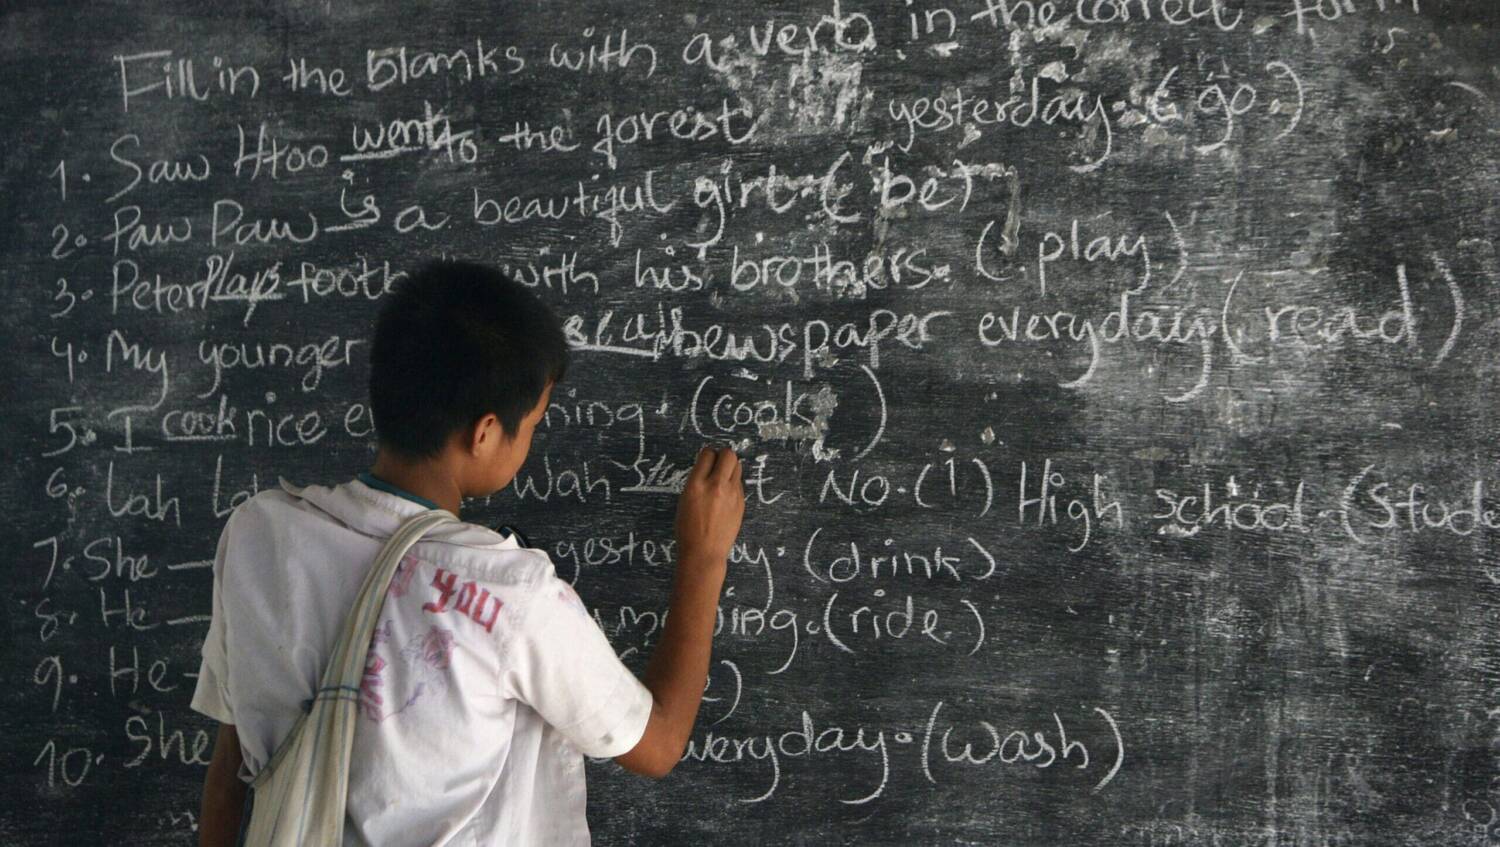 Fill in the blanks with a verb in the correct form
1. Saw Htoo went to the forest yesterday. (go.)
2. Paw Paw is a beautiful girl. (be)
3. Peter plays football with his brothers. (play)
4. My younger newspaper everyday (read)
5. I cook rice ning. (cook)
6. Lah Wah t No. (1) High school. (Stude
7. She yesterday. (drink)
8. He morning. (ride)
9. He )
10. She everyday. (wash)
YOU